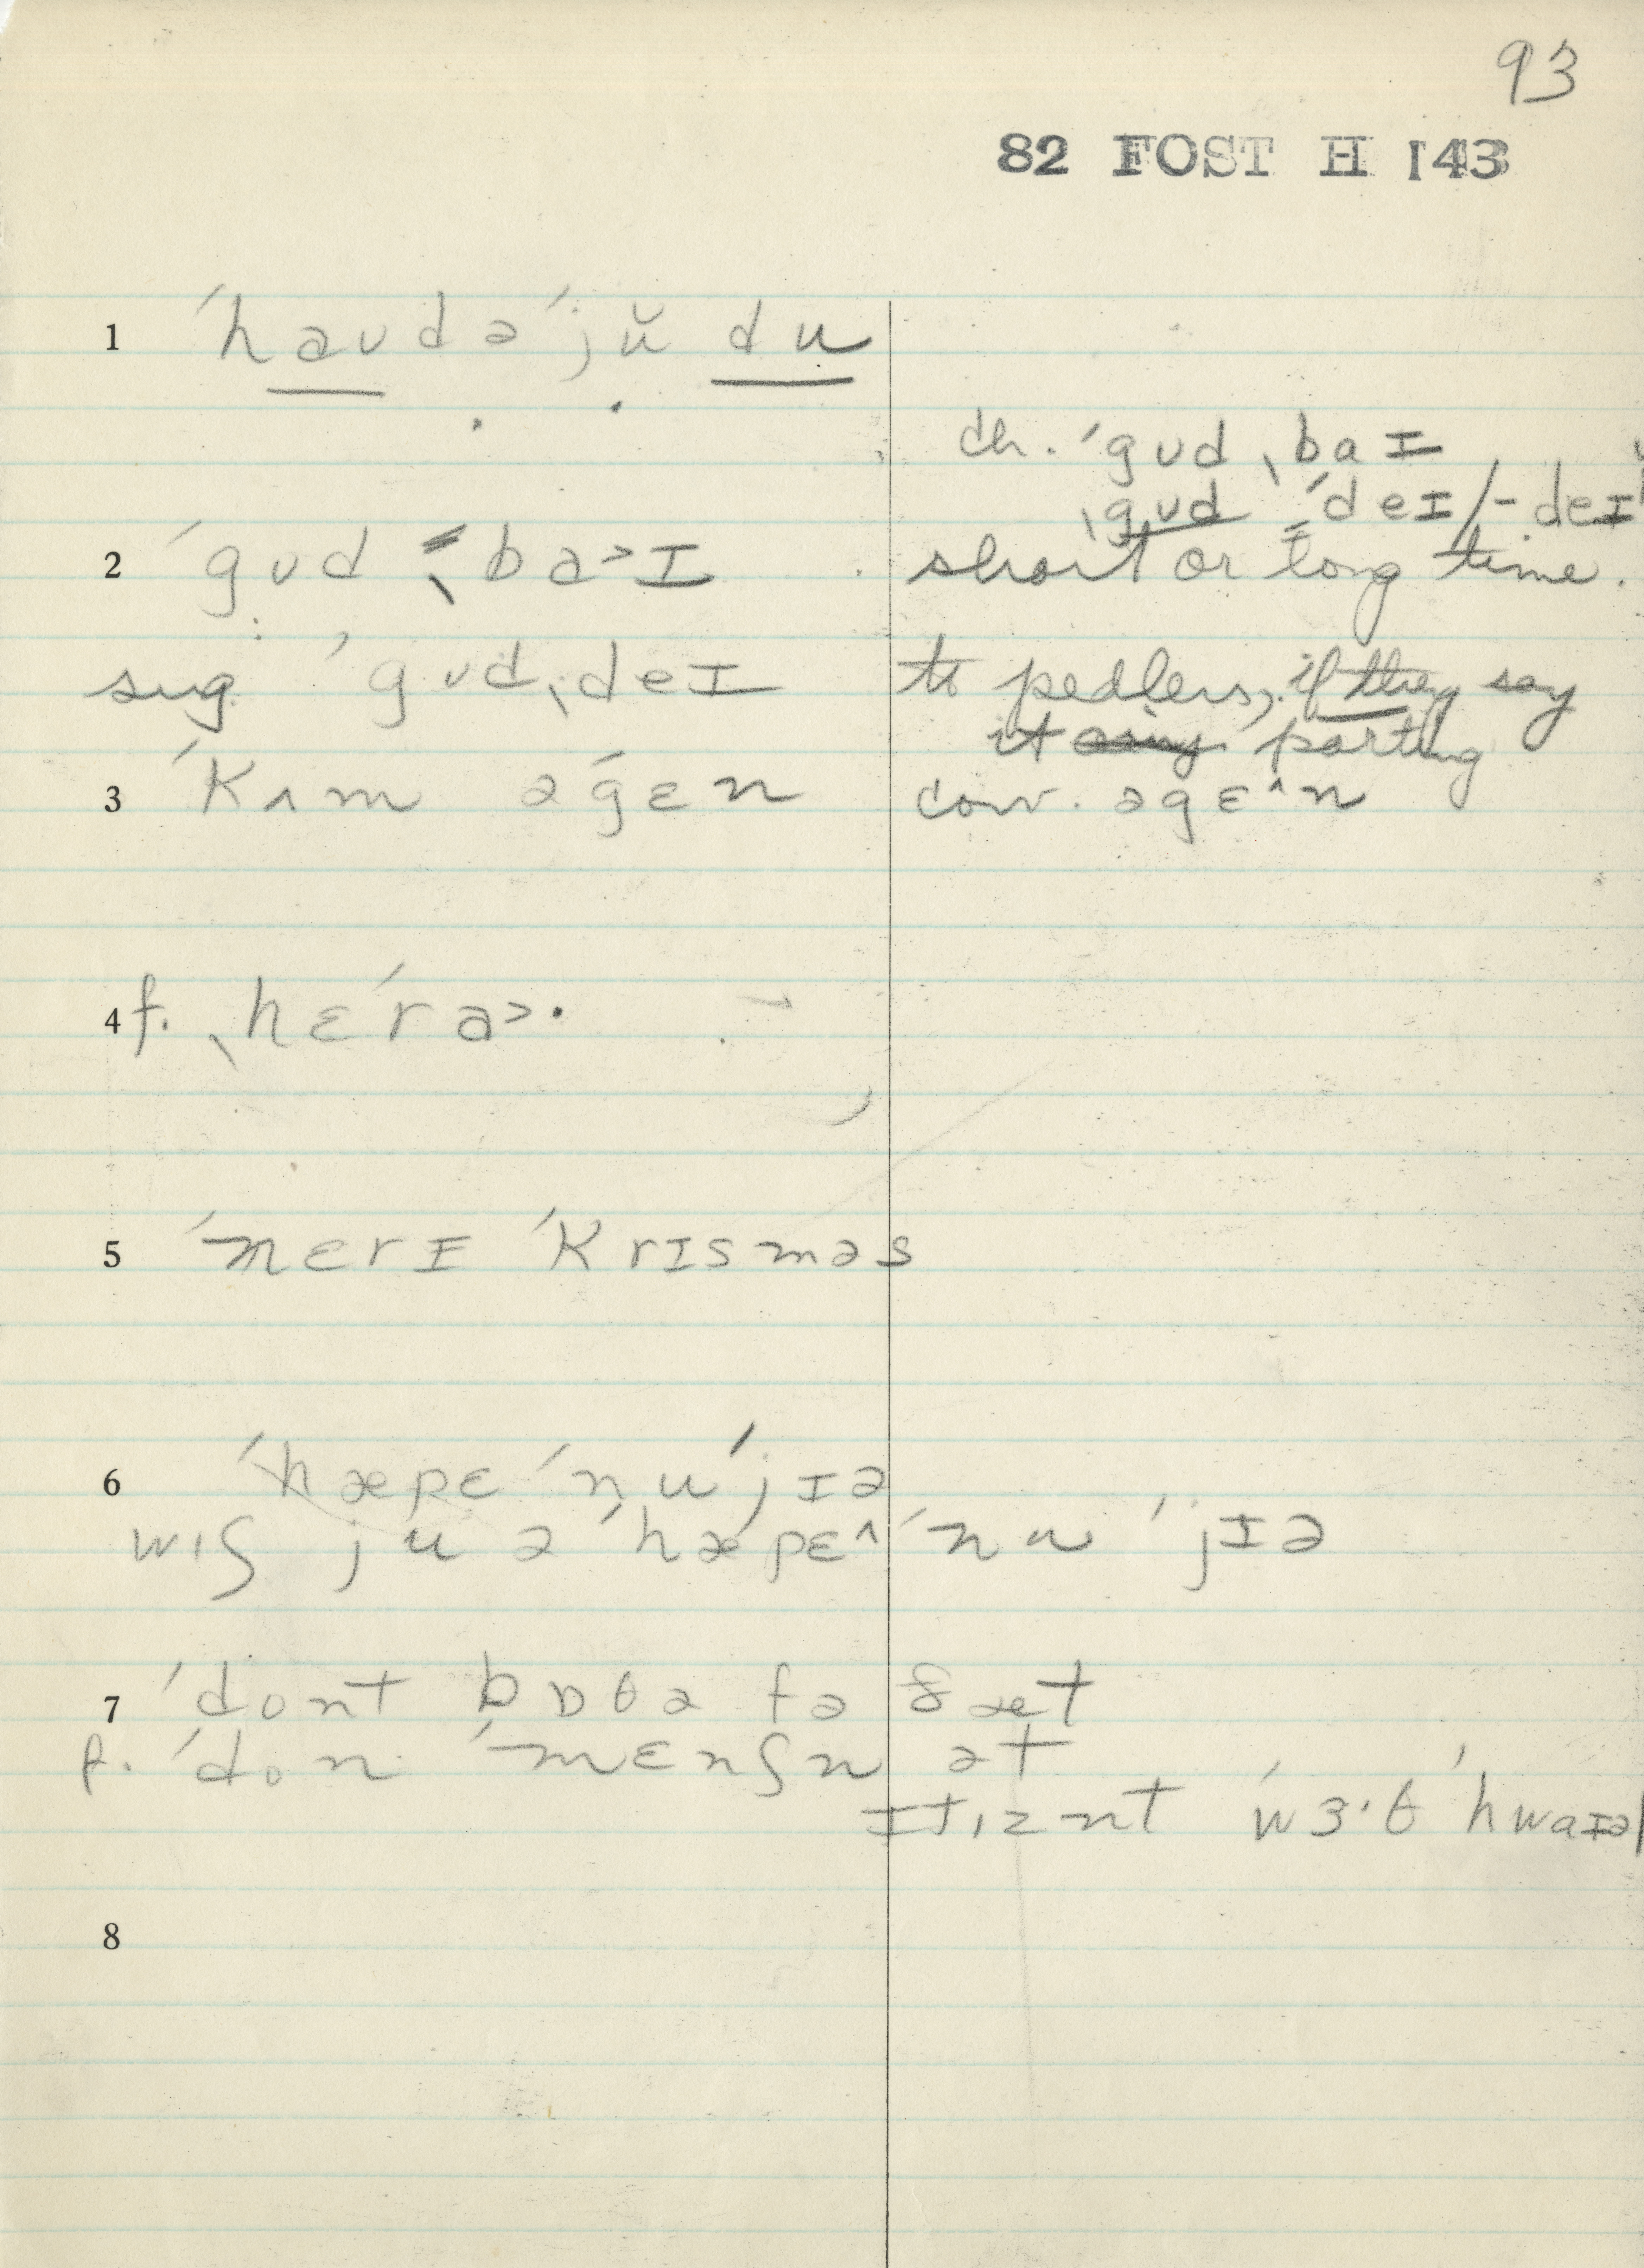 93
82 FOST H 143
1 ˈhaʊdəˈjŭ du
ch. ˈgʊd ˌbaɪ
ˌgʊd ˈdeɪ/-deɪ
2 ˈgʊd ˌba>ɪ short or long time.
sug. ˈgʊdˌdeɪ to pedlers, if they say
it parting
3 ˈkʌm əˈgɛn conv. əgɛ^n
4 f. ˌhɛˈra>·
5 ˈmɛrɪ ˈkrɪsməs
6 ˈhæpɛ ˈnuˈjɪə
wɪʃ ju ə ˈhæpɛ^ ˈnu ˈjɪə
7 ˈdont bɒðə fə ðæt
f. ˈdon ˈmɛnʃn ət
ɪtˌɪznt ˈwɜ·θ ˈhwaɪəl
8